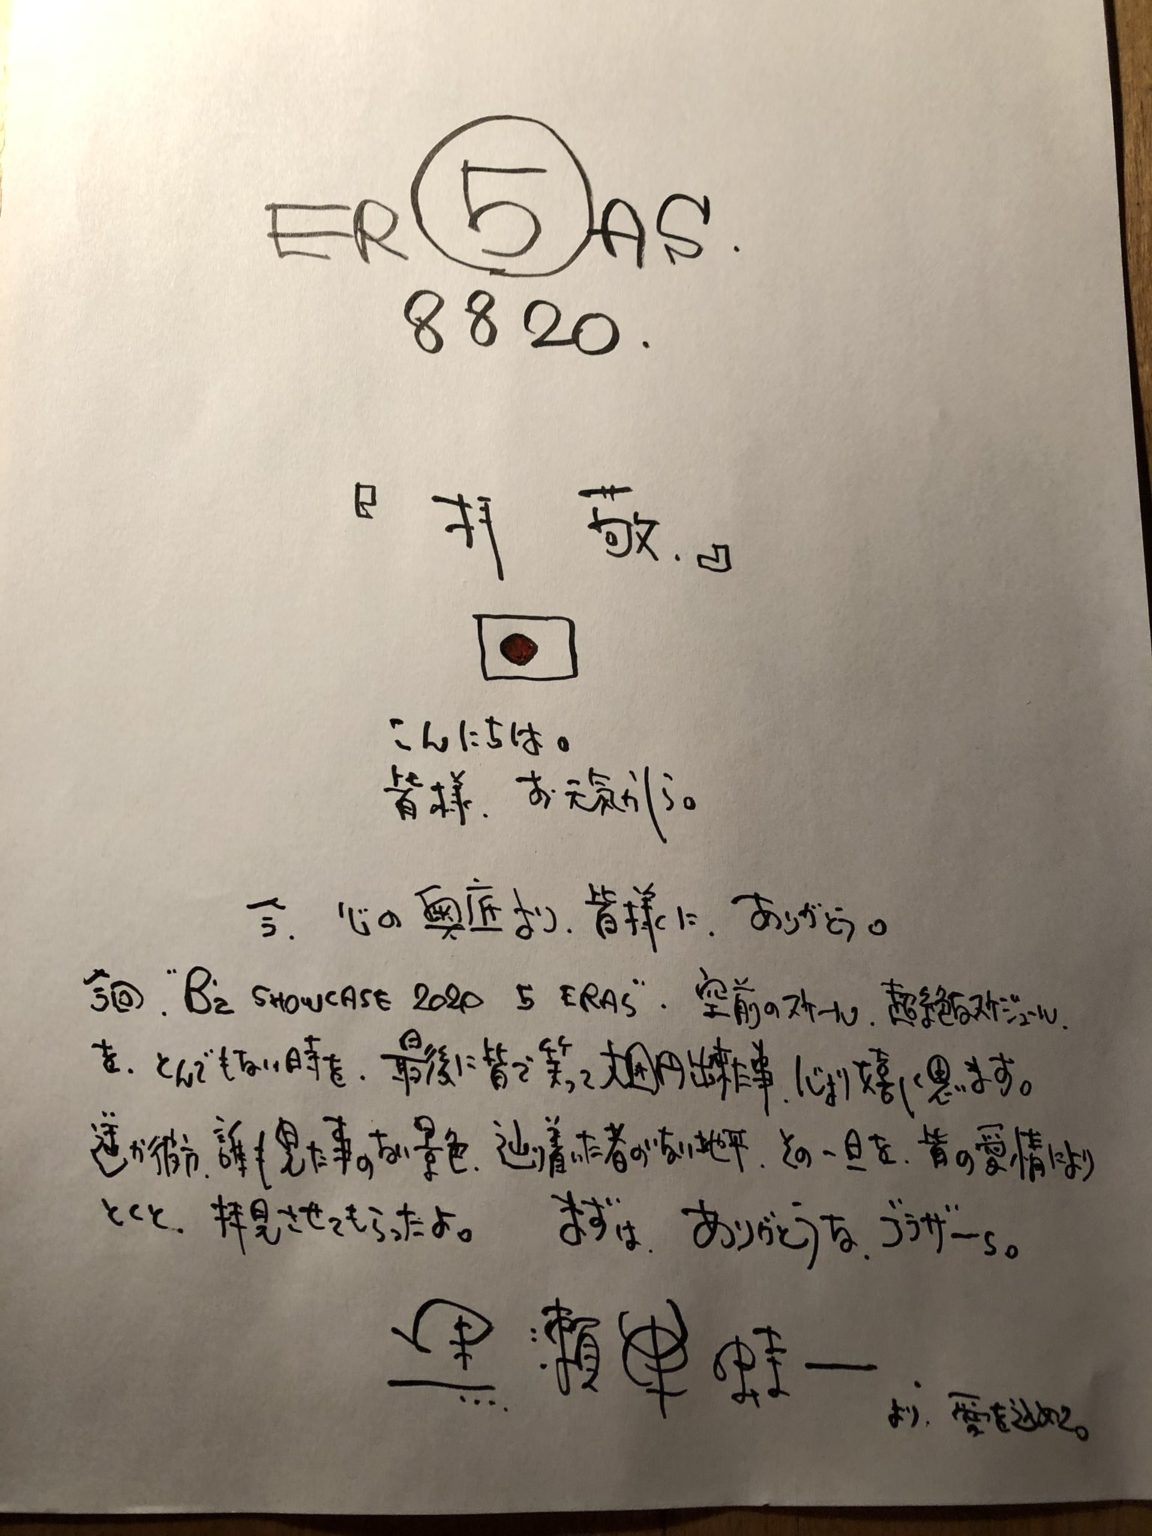 ER⑤AS.
8820.
『拝 敬.』
こんにちは。
皆様、お元気かしら。
今、心の奥底より、皆様に、ありがとう。
今回、"B'z SHOWCASE 2020 5 ERAS"、空前のスケール、超絶なスケジュール、
を、とんでもない時を、最後に皆で笑って大団円出来た事、心より嬉しく思います。
遥か彼方、誰も見た事のない景色、辿り着いた者のない地平、その一旦を、皆の愛情により
とくと、拝見させてもらったよ。 まずは、ありがとうな、ブラザーら。
黒瀬蛙一
より、愛を込めて。